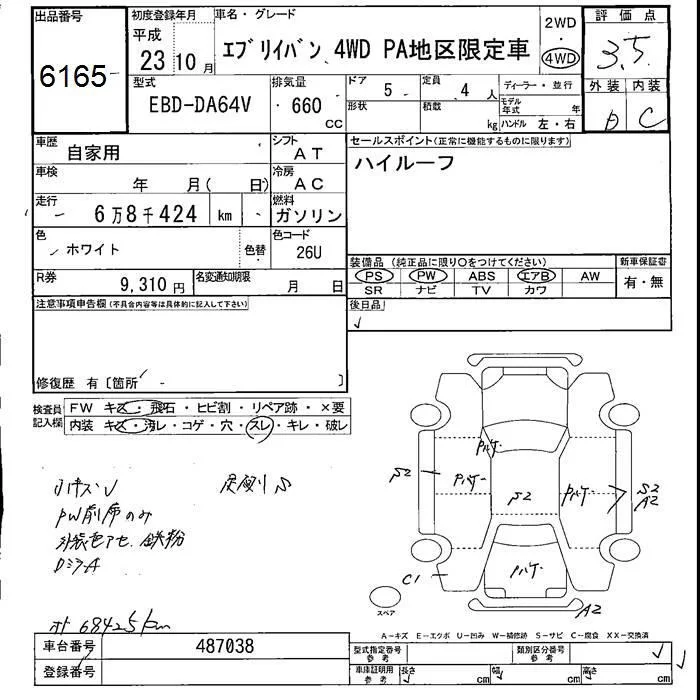 出品番号
6165
初度登録年月
平成
23 10 月
車名・グレード
エブリイバン 4WD PA地区限定車
2WD
・
4WD
評価点
3.5
外装 内装
D C
型式
EBD-DA64V
排気量
・ 660
CC
ドア 5
定員 4 人
形状
積載 kg
ディーラー・並行
モデル年式 年
ハンドル 左・右
車歴
自家用
シフト
AT
車検
年 月( 日)
冷房
AC
走行
6万8千424 km
燃料
ガソリン
色
ホワイト
色替
色コード
26U
R券
9,310 円
名変通知期限
月 日
セールスポイント(正常に機能するものに限ります)
ハイルーフ
装備品 (純正品に限り○をつけてください)
PS PW ABS エアB AW
SR ナビ TV カワ
新車保証書
有・無
後日品
注意事項申告欄(不具合内容等は具体的に記入して下さい)
修復歴 有〔箇所 - 〕
検査員
記入欄
FW キズ・飛石・ヒビ割・リペア跡・×要
内装 キズ・汚レ・コゲ・穴・スレ・キレ・破レ
PW前席のみ
鉄粉
68425km
パケ
S2
パケ
S2
パケ
S2
A2
C1
パケ
A2
スペア
A-キズ E-エクボ U-凹み W-補修跡 S-サビ C-腐食 XX-交換済
車台番号
487038
登録番号
型式指定番号
参考
類別区分番号
参考
車庫証明用
参考
長さ cm
幅 cm
高さ cm